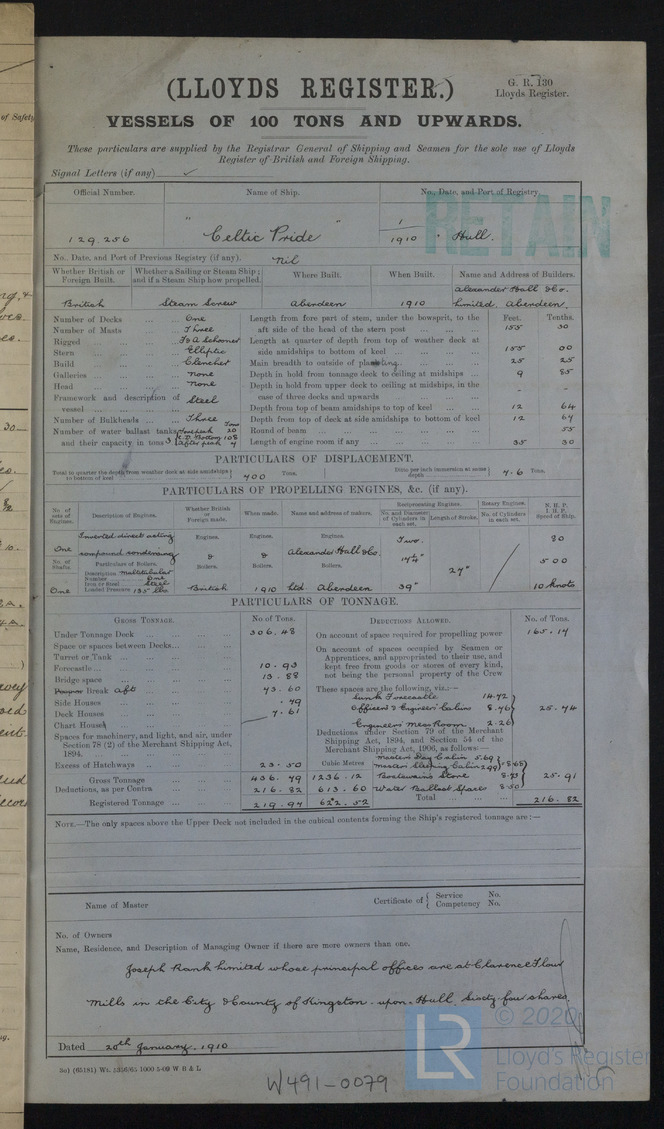 (LLOYDS REGISTER.)
G. R. 130
Lloyds Register.
VESSELS OF 100 TONS AND UPWARDS.
These particulars are supplied by the Registrar General of Shipping and Seamen for the sole use of Lloyds
Register of British and Foreign Shipping.
Signal Letters (if any)
Official Number. Name of Ship. No., Date, and Port of Registry.
RETAIN
129.256 " Celtic Pride " 1/1910 Hull.
No., Date, and Port of Previous Registry (if any). nil
Whether British or Foreign Built. Whether a Sailing or Steam Ship; and if a Steam Ship how propelled. Where Built. When Built. Name and Address of Builders.
British Steam Screw Aberdeen 1910 Alexander Hall & Co. limited, Aberdeen.
Number of Decks One
Number of Masts Three
Rigged F & A Schooner
Stern Elliptic
Build Clencher
Galleries none
Head none
Framework and description of vessel Steel
Number of Bulkheads Three
Number of water ballast tanks and their capacity in tons 3
Feet. Tenths.
Length from fore part of stem, under the bowsprit, to the aft side of the head of the stern post 155 30
Length at quarter of depth from top of weather deck at side amidships to bottom of keel 155 00
Main breadth to outside of plating 25 25
Depth in hold from tonnage deck to ceiling at midships 9 85
Depth in hold from upper deck to ceiling at midships, in the case of three decks and upwards - -
Depth from top of beam amidships to top of keel 12 64
Depth from top of deck at side amidships to bottom of keel 12 64
Round of beam 55
Length of engine room if any 35 30
PARTICULARS OF DISPLACEMENT.
Total to quarter the depth from weather deck at side amidships to bottom of keel 700 Tons. Ditto per inch immersion at same depth 7.6 Tons.
PARTICULARS OF PROPELLING ENGINES, &c. (if any).
No. of sets of Engines. Description of Engines. Whether British or Foreign made. When made. Name and address of makers. Reciprocating Engines. No. and Diameter of Cylinders in each set. Length of Stroke. Rotary Engines. No. of Cylinders in each set. N. H. P. I. H. P. Speed of Ship.
One Inverted direct acting compound condensing
Engines. & Boilers. British
Engines. & Boilers. 1910
Engines. Alexander Hall & Co. Boilers. Ltd Aberdeen
Two. 17¼" 39" 27" 80 500 10 knots
No. of Shafts. One
Particulars of Boilers.
Description Multitubular
Number One
Iron or Steel Steel
Loaded Pressure 135 lbs
PARTICULARS OF TONNAGE.
GROSS TONNAGE. No of Tons. DEDUCTIONS ALLOWED. No. of Tons.
Under Tonnage Deck 306.48
Space or spaces between Decks
Turret or Tank
Forecastle 10.93
Bridge space 13.88
Poop or Break aft 73.60
Side Houses .79
Deck Houses 7.61
Chart House
Spaces for machinery, and light, and air, under Section 78 (2) of the Merchant Shipping Act, 1894.
Excess of Hatchways 23.50
Gross Tonnage 436.79
Deductions, as per Contra 216.82
Registered Tonnage 219.97
Cubic Metres
1236.12
613.60
622.52
On account of space required for propelling power 165.17
On account of spaces occupied by Seamen or Apprentices, and appropriated to their use, and kept free from goods or stores of every kind, not being the personal property of the Crew
These spaces are the following, viz.:—
Sunk Forecastle 14.72
Officers & Engineers Cabins 8.76 25.74
Engineers Mess Room 2.26
Deductions under Section 79 of the Merchant Shipping Act, 1894, and Section 54 of the Merchant Shipping Act, 1906, as follows—
Masters Day Cabin 5.69
Masters Sleeping Cabin 2.99 8.68
Boatswains Store 8.73 25.91
Water Ballast Spaces 8.50
Total 216.82
NOTE.—The only spaces above the Upper Deck not included in the cubical contents forming the Ship's registered tonnage are:—
Name of Master Certificate of Service No. Competency No.
No. of Owners
Name, Residence, and Description of Managing Owner if there are more owners than one.
Joseph Rank Limited whose principal offices are at Clarence Flour
Mills in the City & County of Kingston-upon-Hull, Sixty four shares
Dated 20th January, 1910
W491-0079
LR
© 2020
Lloyd's Register
Foundation